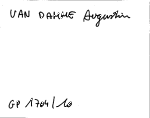 VAN DAMME Augustin
GP 1704/10